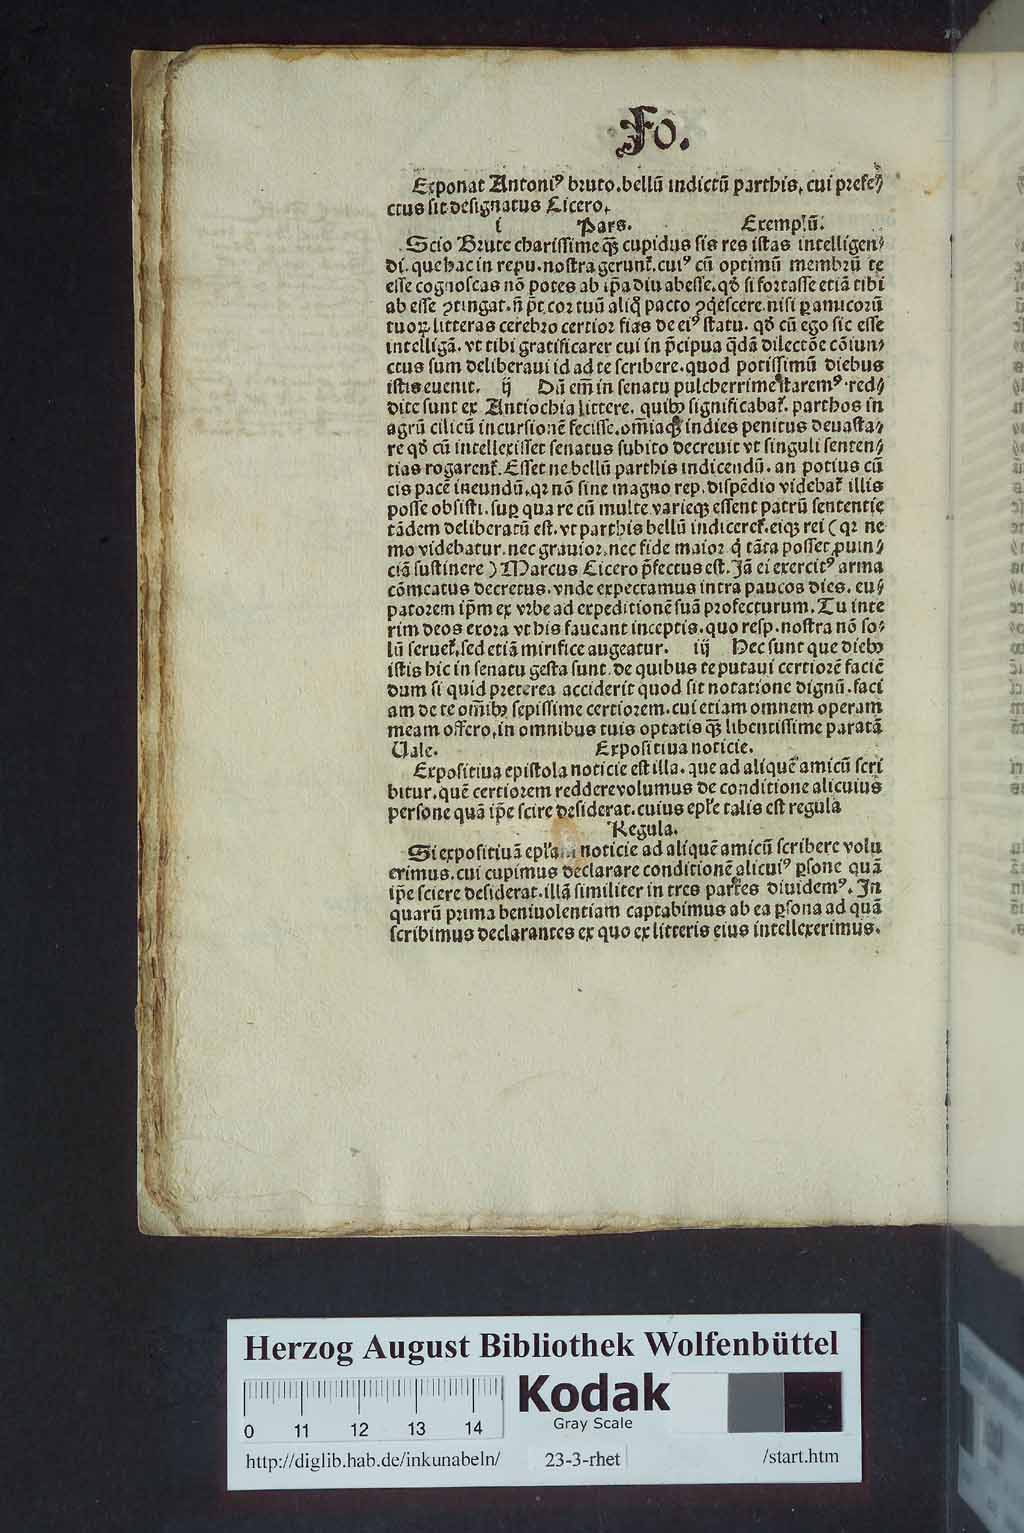 Fo.
Exponat Antoniꝰ bruto. bellū indictū parthis, cui prefe⸗
ctus sit designatus Cicero.
i Pars. Exemplū.
Scio Brute charissime qꝫ cupidus sis res istas intelligen⸗
di. que hac in repu. nostra gerunt᷑. cuiꝰ cū optimū membrū te
esse cognoscas nō potes ab ip̄a diu abesse. qđ si fortasse etiā tibi
ab esse ꝯtingat. n̄ p̄t cor tuū aliq̊ pacto ꝯq̇escere. nisi ꝑ amicorū
tuoꝝ litteras cerebro certior fias de eiꝰ statu. qđ cū ego sic esse
intelligā. vt tibi gratificarer cui in p̄cipua q̄dā dilectōe cōiun⸗
ctus sum deliberaui id ad te scribere. quod potissimū diebus
istis euenit. ij Dū em̄ in senatu pulcherrime staremꝰ. red⸗
dite sunt ex Antiochia littere. quibꝫ significabat᷑. parthos in
agrū cilicū incursionē fecisse. om̄iaqꝫ indies penitus deuasta⸗
re qđ cū intellexisset senatus subito decreuit vt singuli senten⸗
tias rogarent᷑. Esset ne bellū parthis indicendū. an potius cū
cis pacē ineundū. qꝛ nō sine magno rep. dispēdio videbat᷑ illis
posse obsisti. suꝑ qua re cū multe varieqꝫ essent patrū sententie
tādem deliberatū est. vt parthis bellū indiceret᷑. eiqꝫ rei (qꝛ ne
mo videbatur. nec grauior. nec fide maior q̇ tāta posset ꝓuin⸗
ciā sustinere) Marcus Cicero p̄fectus est. Jā ei exercitꝰ arma
cōmeatus decretus. vnde expectamus intra paucos dies. eu⸗
patorem ip̄m ex vrbe ad expeditionē suā profecturum. Tu inte
rim deos exora vt his faueant inceptis. quo resp. nostra nō so⸗
lū seruet᷑. sed etiā mirifice augeatur. iij Hec sunt que diebꝫ
istis hic in senatu gesta sunt. de quibus te putaui certiorē faciē
dum si quid preterea acciderit quod sit notatione dignū. faci
am de te om̄ibꝫ sepissime certiorem. cui etiam omnem operam
meam offero, in omnibus tuis optatis qꝫ libentissime paratā
Vale. Expositiua noticie.
Expositiua epistola noticie est illa. que ad aliquē amicū scri
bitur. quē certiorem reddere volumus de conditione alicuius
persone quā ip̄e scire desiderat. cuius epl̄e talis est regula
Regula.
Si expositiuā epl̄am noticie ad aliquē amicū scribere volu
erimus. cui cupimus declarare conditionē alicuiꝰ ꝑsone quā
ip̄e sciere desiderat. illā similiter in tres partes diuidemꝰ. In
quarū prima beniuolentiam captabimus ab ea ꝑsona ad quā
scribimus declarantes ex quo ex litteris eius intellexerimus.
Herzog August Bibliothek Wolfenbüttel
0 11 12 13 14
Kodak
Gray Scale
http://diglib.hab.de/inkunabeln/ 23-3-rhet /start.htm